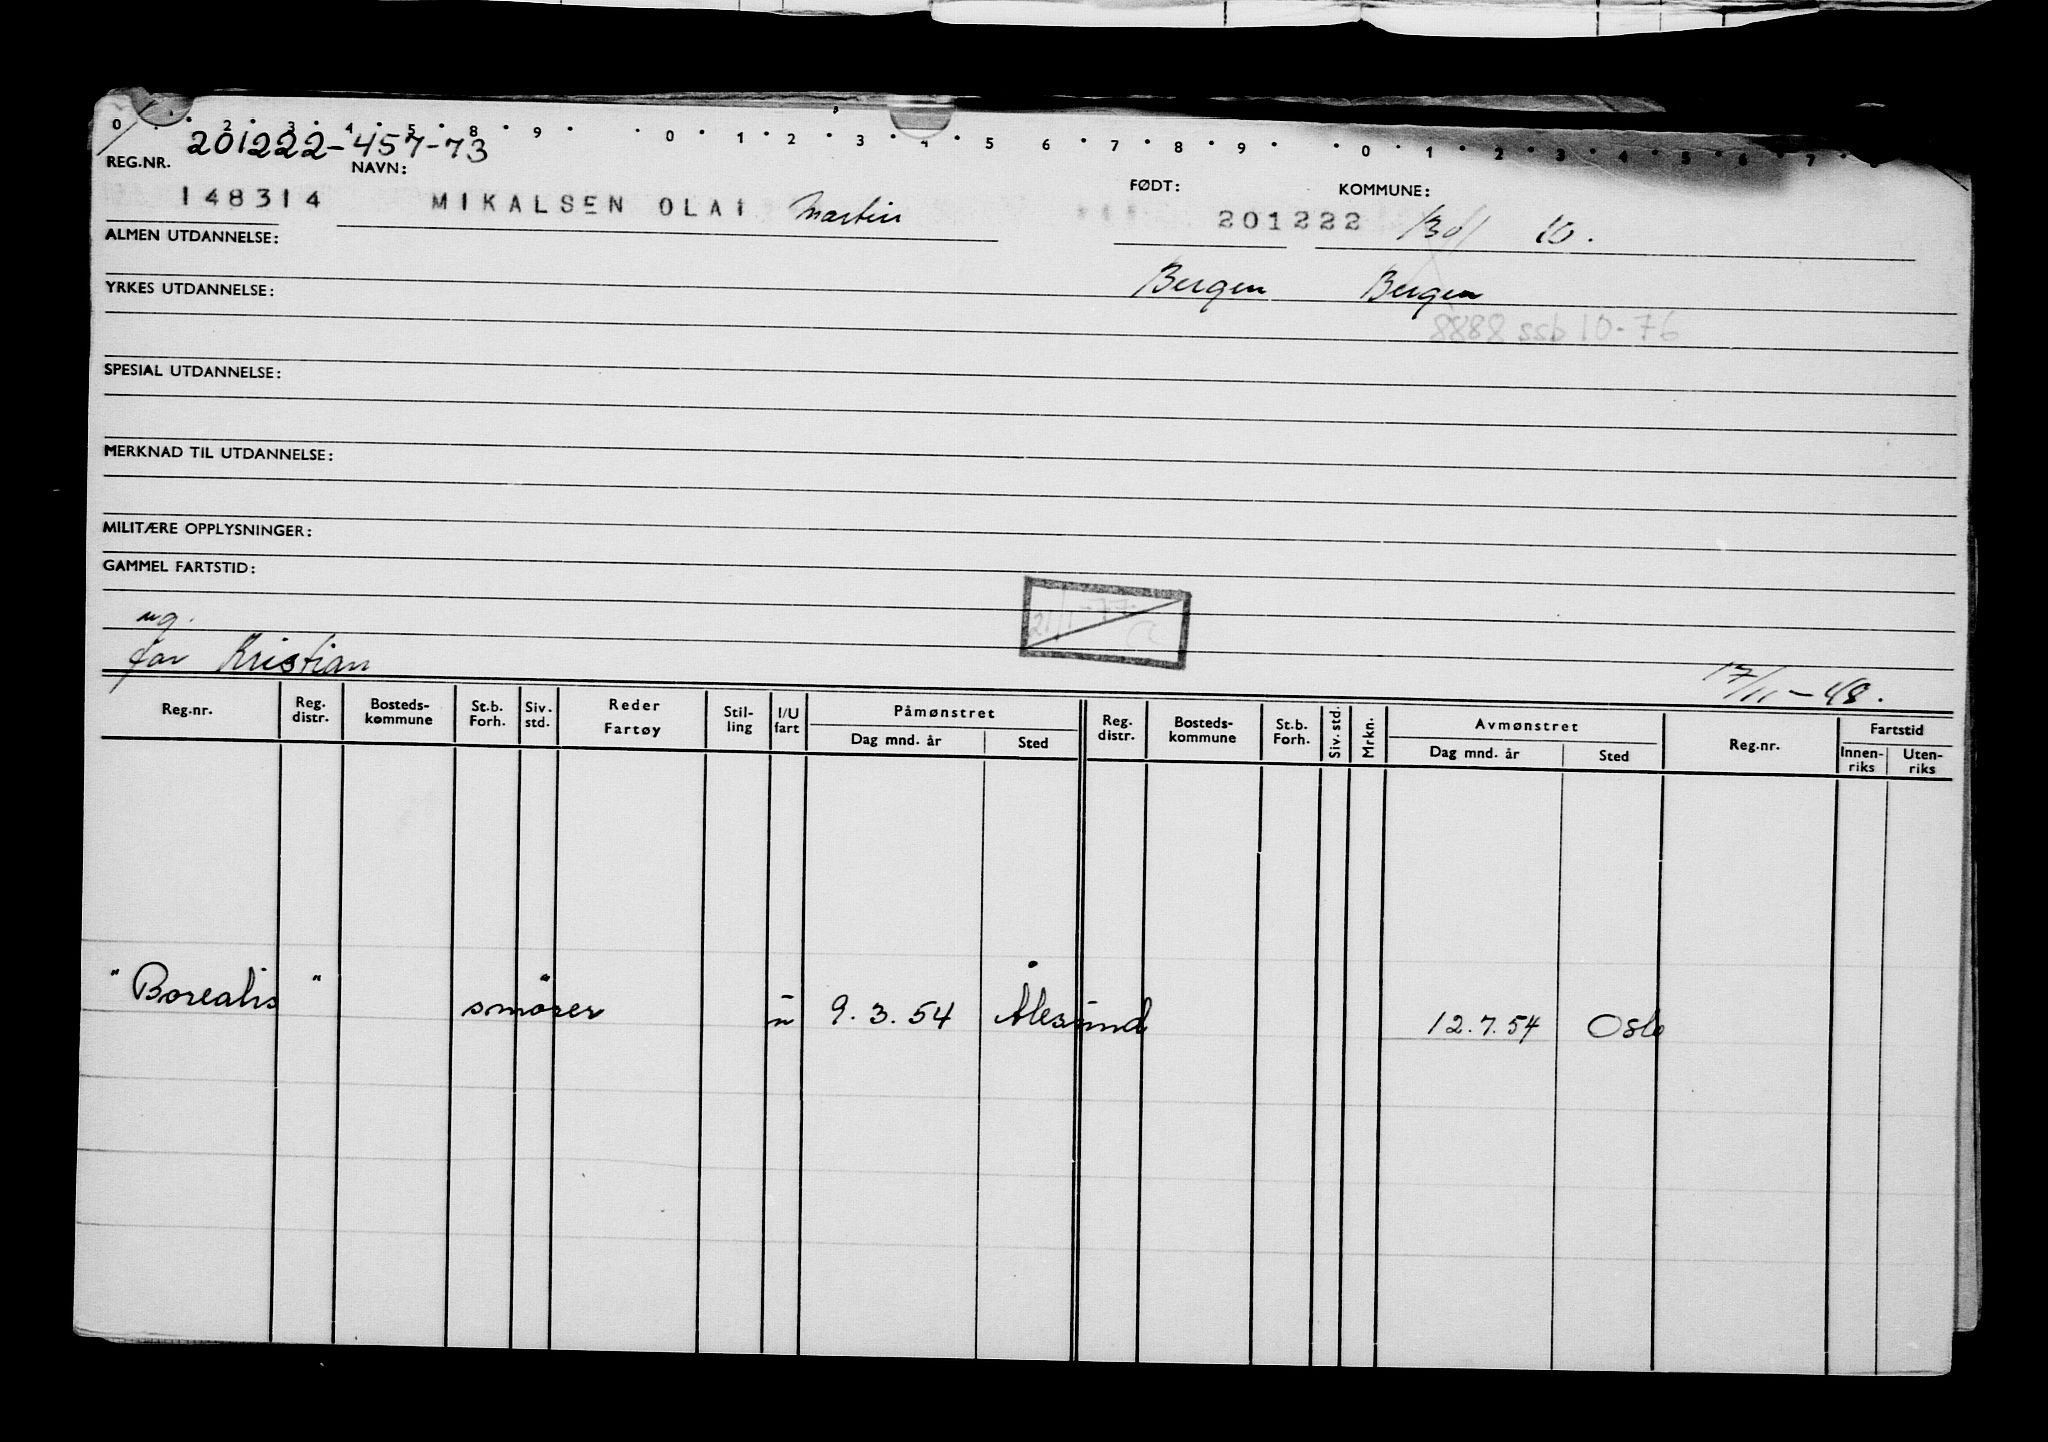 0 . . 2 . 3 . 4 . 5 . 8 . 9 . . 0 . 1 . 2 . 3 . 4 . 5 6 . 7 . 8 . 9 . . 0 . 1 . 2 . 3 . 4 . 5 . 6 . 7 .
201222-457-73
REG.NR. NAVN: FØDT: KOMMUNE:
148314 MIKALSEN OLAI Martin 201222 10.
ALMEN UTDANNELSE:
Bergen Bergen
YRKES UTDANNELSE:
8888 ssb 10-76
SPESIAL UTDANNELSE:
MERKNAD TIL UTDANNELSE:
MILITÆRE OPPLYSNINGER:
GAMMEL FARTSTID:
ug.
far Kristian 17/11-48.
Reg.nr. Reg. distr. Bosteds-kommune St.b. Forh. Siv. std. Reder Fartøy Stil-ling I/U fart Påmønstret Dag mnd. år Sted Reg. distr. Bosteds-kommune St.b. Forh. Siv. std. Mrkn. Avmønstret Dag mnd. år Sted Reg.nr. Fartstid Innen-riks Uten-riks
"Borealis" smører u 9.3.54 Ålesund 12.7.54 Oslo